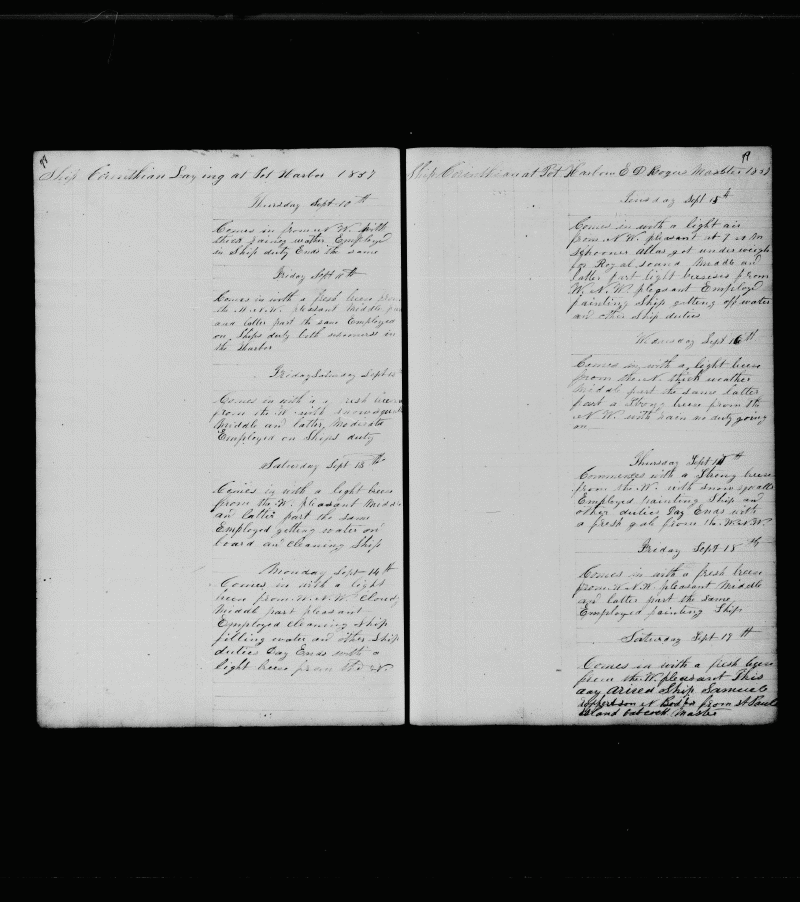 Ship Corinthian Laying at Pot Harbor 1857
Thursday Sept 10th
Comes in from N W. with
thick rainey wather Employed
in Ship duty Ends the same
Friday Sept 11th
Comes in with a fresh breese from
the W.N.W. pleasant Middle part
and latter part the same Employed
on Ships duty both schooners in
the Harbor
Friday Saturday Sept
Comes in with a a fresh breese
from the W with snow squalls
Middle and latter Moderate
Employed on Ships duty
Saturday Sept 13th
Comes in with a light breese
from the W. pleasant Middle
an latter part the same
Employed getting water on
board an cleaning Ship
Monday Sept 14th
Comes in with a light
breese from W.N.W. Cloudy
Middle part pleasant
Employed cleaning Ship
filling water an other Ship
duties Day Ends with a
light breese from the N.
Ship Corinthian at Pot Harbour E D Rogers Master 1857
Teusday Sept 15th
Comes in with a light air
from N.W. pleasant at 7 A M
Schooner Atlas got underweigh
for Royal sound Middle and
latter part light breeses from
W.N.W. pleasant Employed
painting Ship getting off water
an other Ship duties
Wednesday Sept 16th
Comes in with a light breese
from the N. thick weather
Middle part the same latter
part a Strong breese from the
N.W. with rain no duty going
on
Thursday Sept 17th
Commences with a Strong breese
from the W. with snow squalls
Employed painting Ship and
other duties Day Ends with
a fresh gale from the W.N.W.
Friday Sept 18th
Comes in with a fresh breese
from W.N.W. pleasant Middle
and latter part the same
Employed painting Ship
Saturday Sept 19th
Comes in with a fresh breese
from the W. pleasant This
day arived Ship Samuel
Robertson N Bedfo from St Pauls
Island Babcock Master